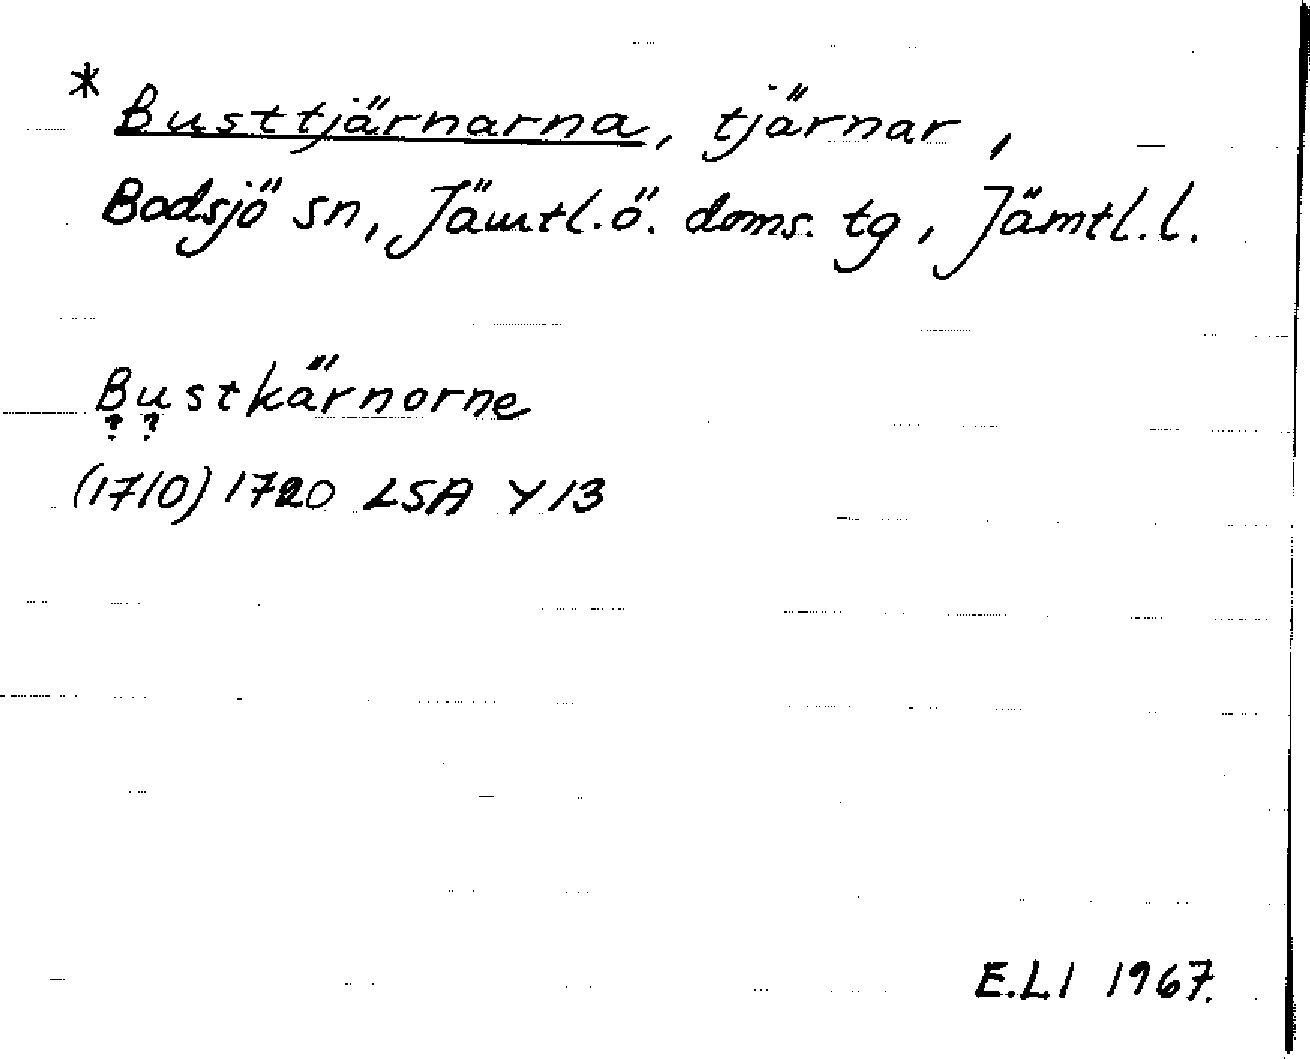 * Busttjärnarna, tjärnar,
Bodsjö sn, Jämtl.ö. doms. tg, Jämtl.l.
Bustkärnorne
? ?
(1710) 1720 LSA Y 13
E.L1 1967.